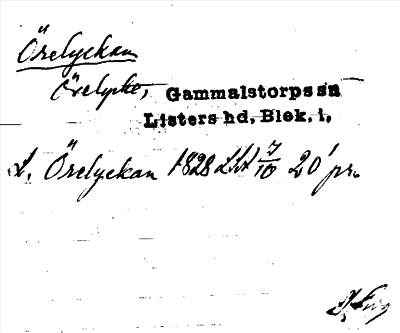 Örelyckan
Örelycke, Gammalstorps sn
Listers hd, Blek. l.
L. Örelyckan 1828 Lskt 7/10 20' pr.